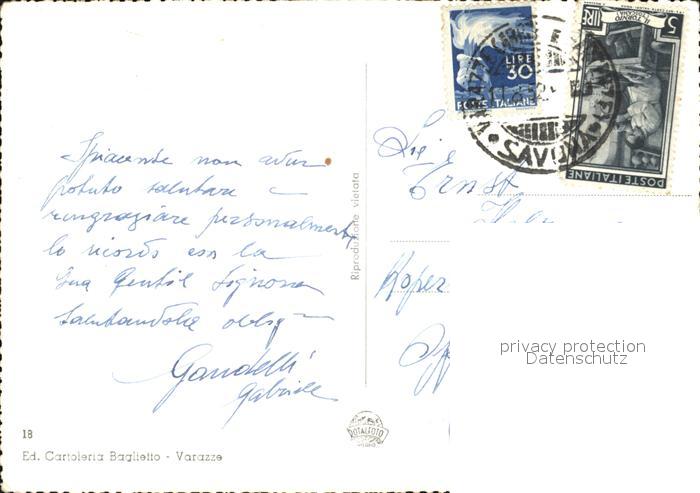 Spiacente non aver
potuto salutare e
ringraziare personalmente
la ricordo con la
Sua Gentil Signora
Salutandola
Gandelli
Gabriele
18
Ed. Cartoleria Baglietto - Varazze
Riproduzione vietata
ROTALFOTO
LIRE
30
POSTE ITALIANE
5
LIRE
POSTE ITALIANE
VARAZZE
SAVONA
Sig
Ernst
privacy protection
Datenschutz